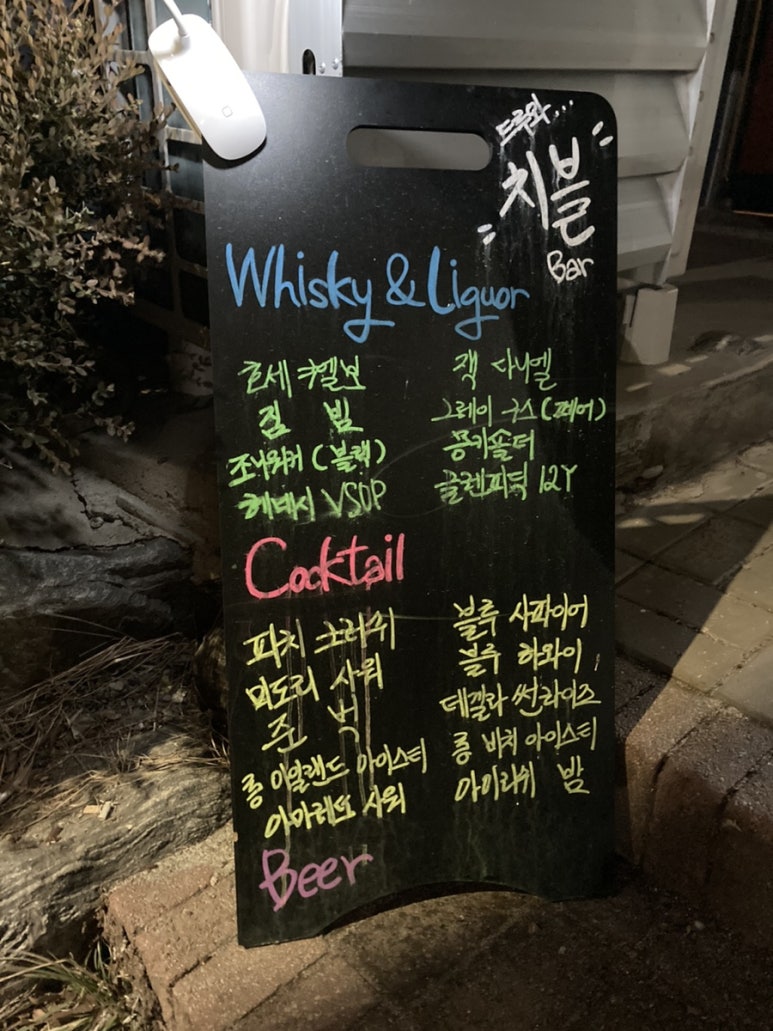 드루와...
치블
Bar
Whisky & Liquor
호세 쿠엘보
짐 빔
조니워커 (블랙)
헤네시 VSOP
잭 다니엘
그레이 구스 (페어)
몽키숄더
글렌피딕 12Y
Cocktail
피치 크러쉬
미도리 사워
준 벅
롱 아일랜드 아이스티
아마레또 사워
블루 사파이어
블루 하와이
데낄라 썬라이즈
롱 비치 아이스티
아이리쉬 밤
Beer